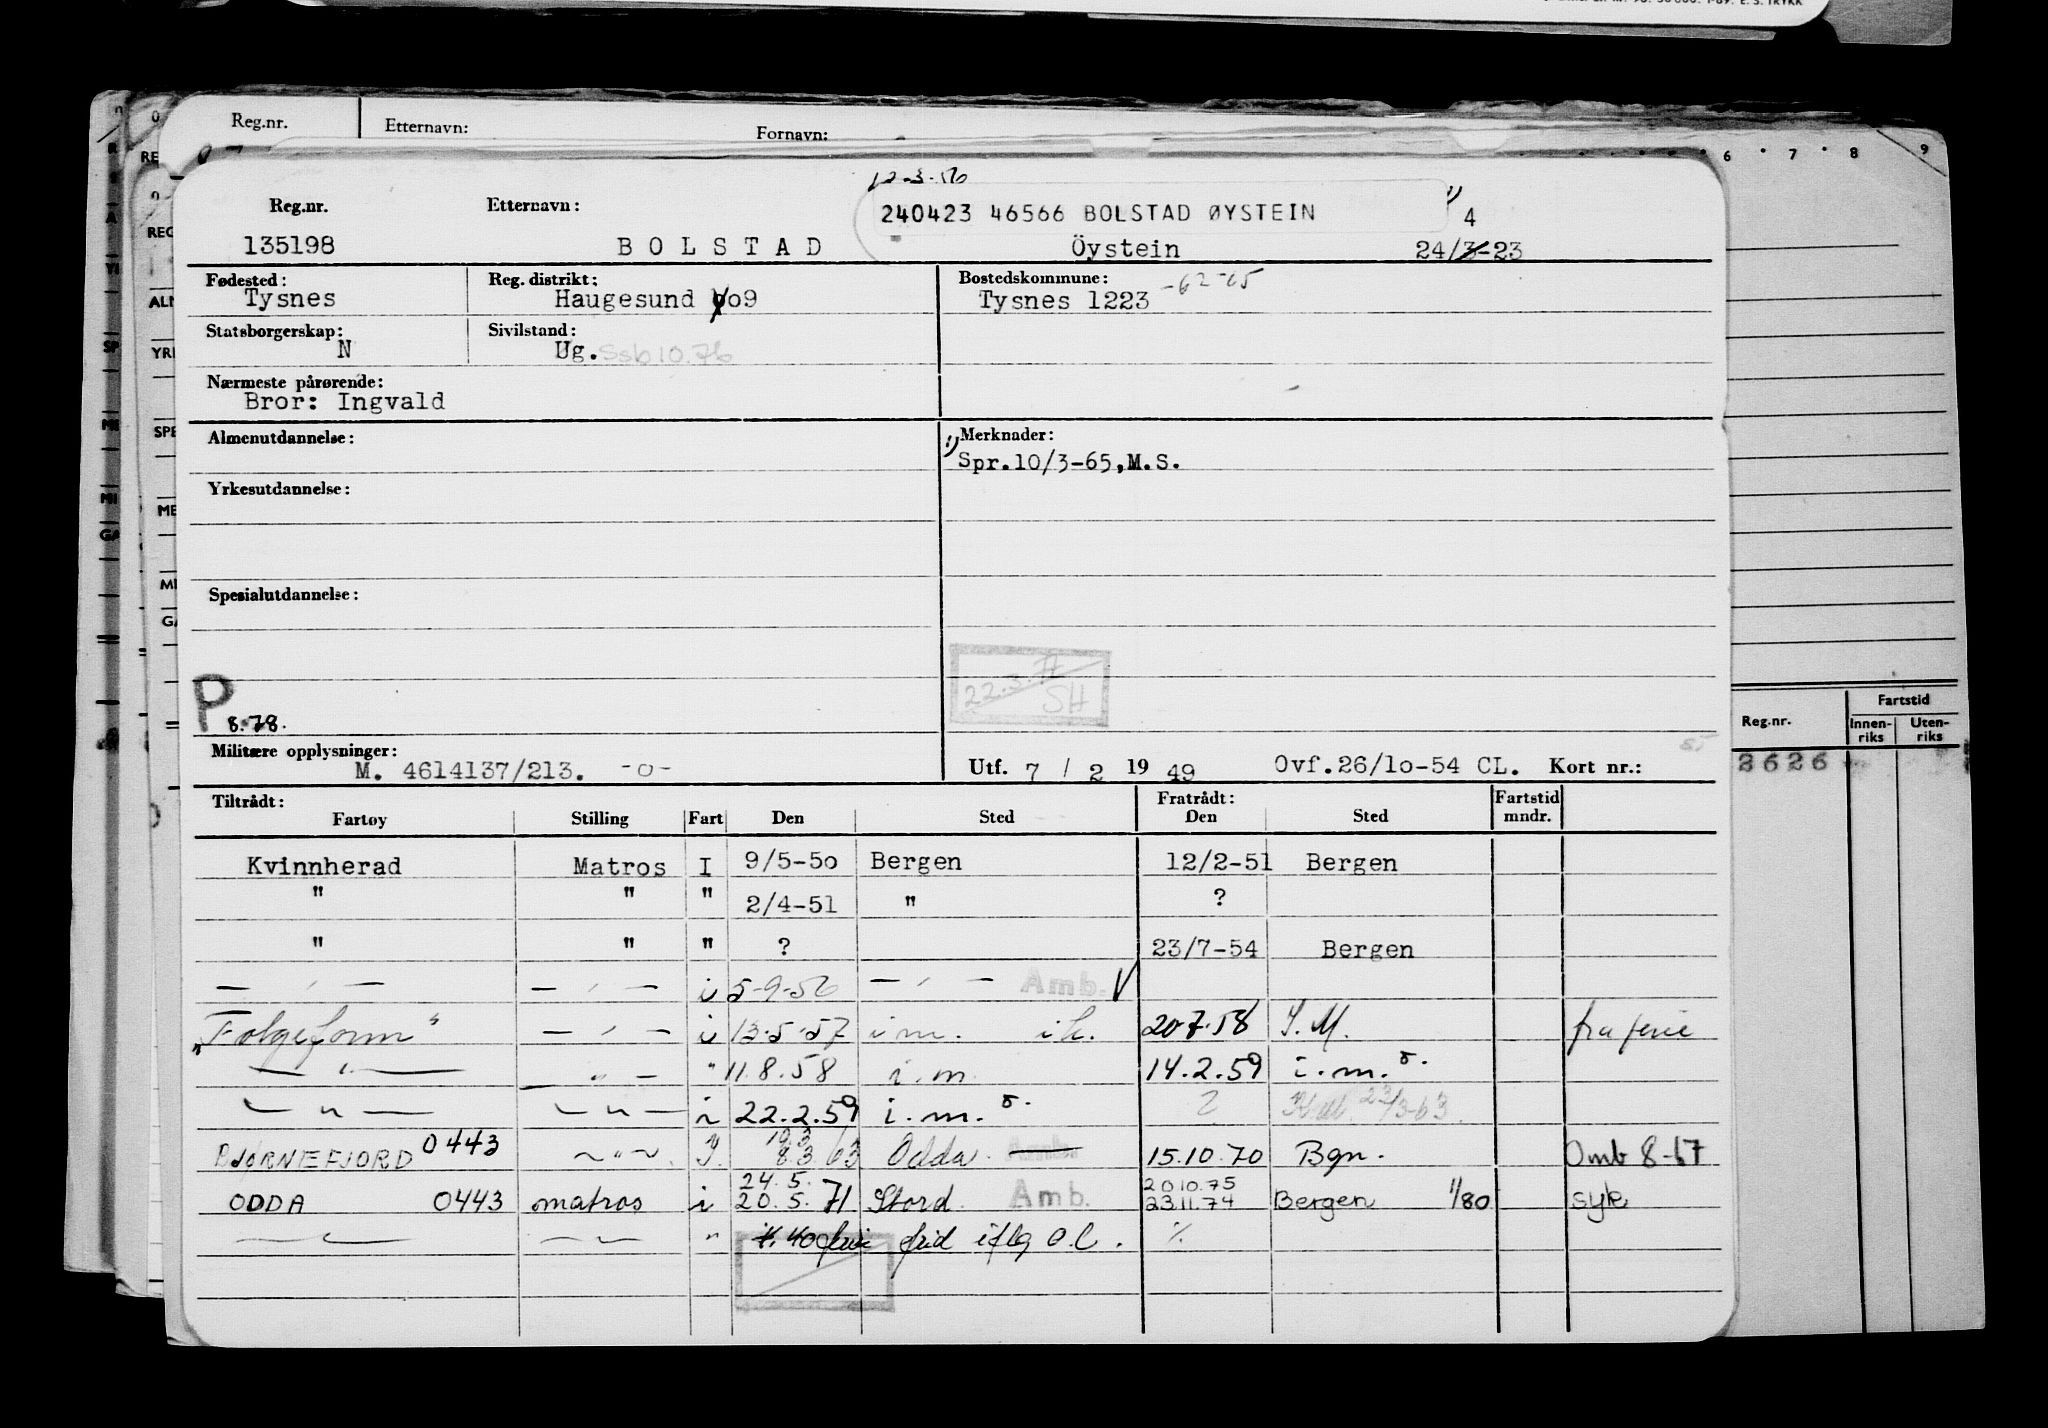 Reg.nr. Etternavn: Fornavn:
6 7 8 9
12-3-56
Reg.nr. Etternavn: 240423 46566 BOLSTAD ØYSTEIN 4
135198 B O L S T A D Öystein 24/3-23
Fødested: Reg. distrikt: Bostedskommune: -62-65
Tysnes Haugesund oo9 Tysnes 1223
Statsborgerskap: Sivilstand:
N Ug. Ssb 10.76
Nærmeste pårørende:
Bror: Ingvald
Almenutdannelse: 1) Merknader:
Spr.10/3-65,M.S.
Yrkesutdannelse:
Spesialutdannelse:
22.3.71
SH
P
8.78.
Militære opplysninger:
M. 4614137/213. -o- Utf. 7 / 2 19 49 Ovf.26/lo-54 CL. Kort nr.:
Tiltrådt: Fratrådt: Fartstid
Fartøy Stilling Fart Den Sted Den Sted mndr.
Kvinnherad Matros I 9/5-5o Bergen 12/2-51 Bergen
" " " 2/4-51 " ?
" " " ? 23/7-54 Bergen
— " — — " — i 5-9-56 — " — Amb.
"Folgefonn" — " — i 13-5-57 i m. i k. 20-7-58 I. M. fra ferie
— " — — " — " 11.8.58 i.m 14.2.59 i.m.
— " — — " — i 22.2.59 i.m. ? 23/3-63
BJØRNEFJORD 0443 — " — 19.3 8.3.63 Odda Amb. 15.10.70 Bgn. Omb 8-67
24.5. 20.10.75
ODDA 0443 matros i 20.5.71 Stord Amb. 23.11.74 Bergen 1/80 syk
— " — — " — " ferie frid iflg O.L. %
Reg.nr. Fartstid
Innen- Uten-
riks riks
2626